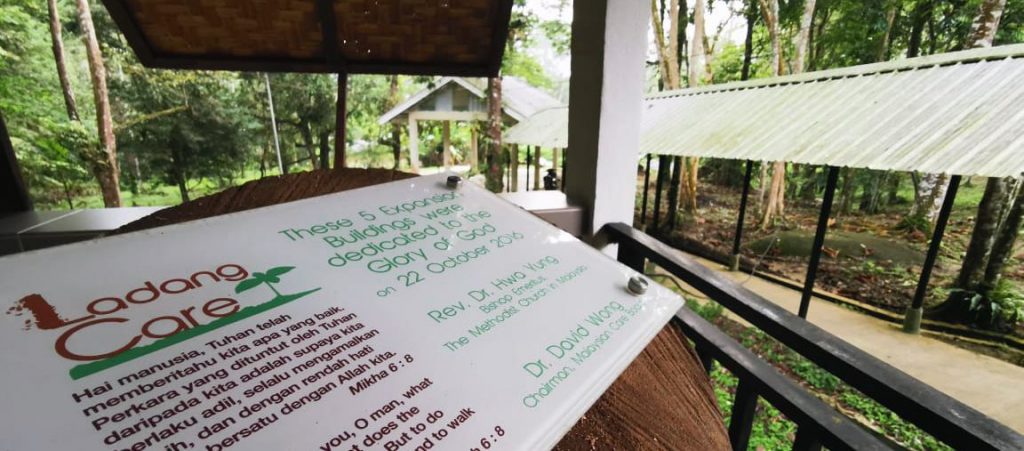 Ladang
Care
Hai manusia, Tuhan telah
memberitahu kita apa yang baik.
Perkara yang dituntut oleh Tuhan
daripada kita adalah supaya kita
berlaku adil, selalu mengamalkan
ih, dan dengan rendah hati
bersatu dengan Allah kita.
Mikha 6 : 8
you, O man, what
at does the
But to do
nd to walk
h 6 : 8
These 5 Expansion
Buildings were
dedicated to the
Glory of God
on 22 October 2016
Rev. Dr. Hwa Yung
Bishop Emeritus
The Methodist Church in Malaysia
Dr. David Wong
Chairman, Malaysian Care